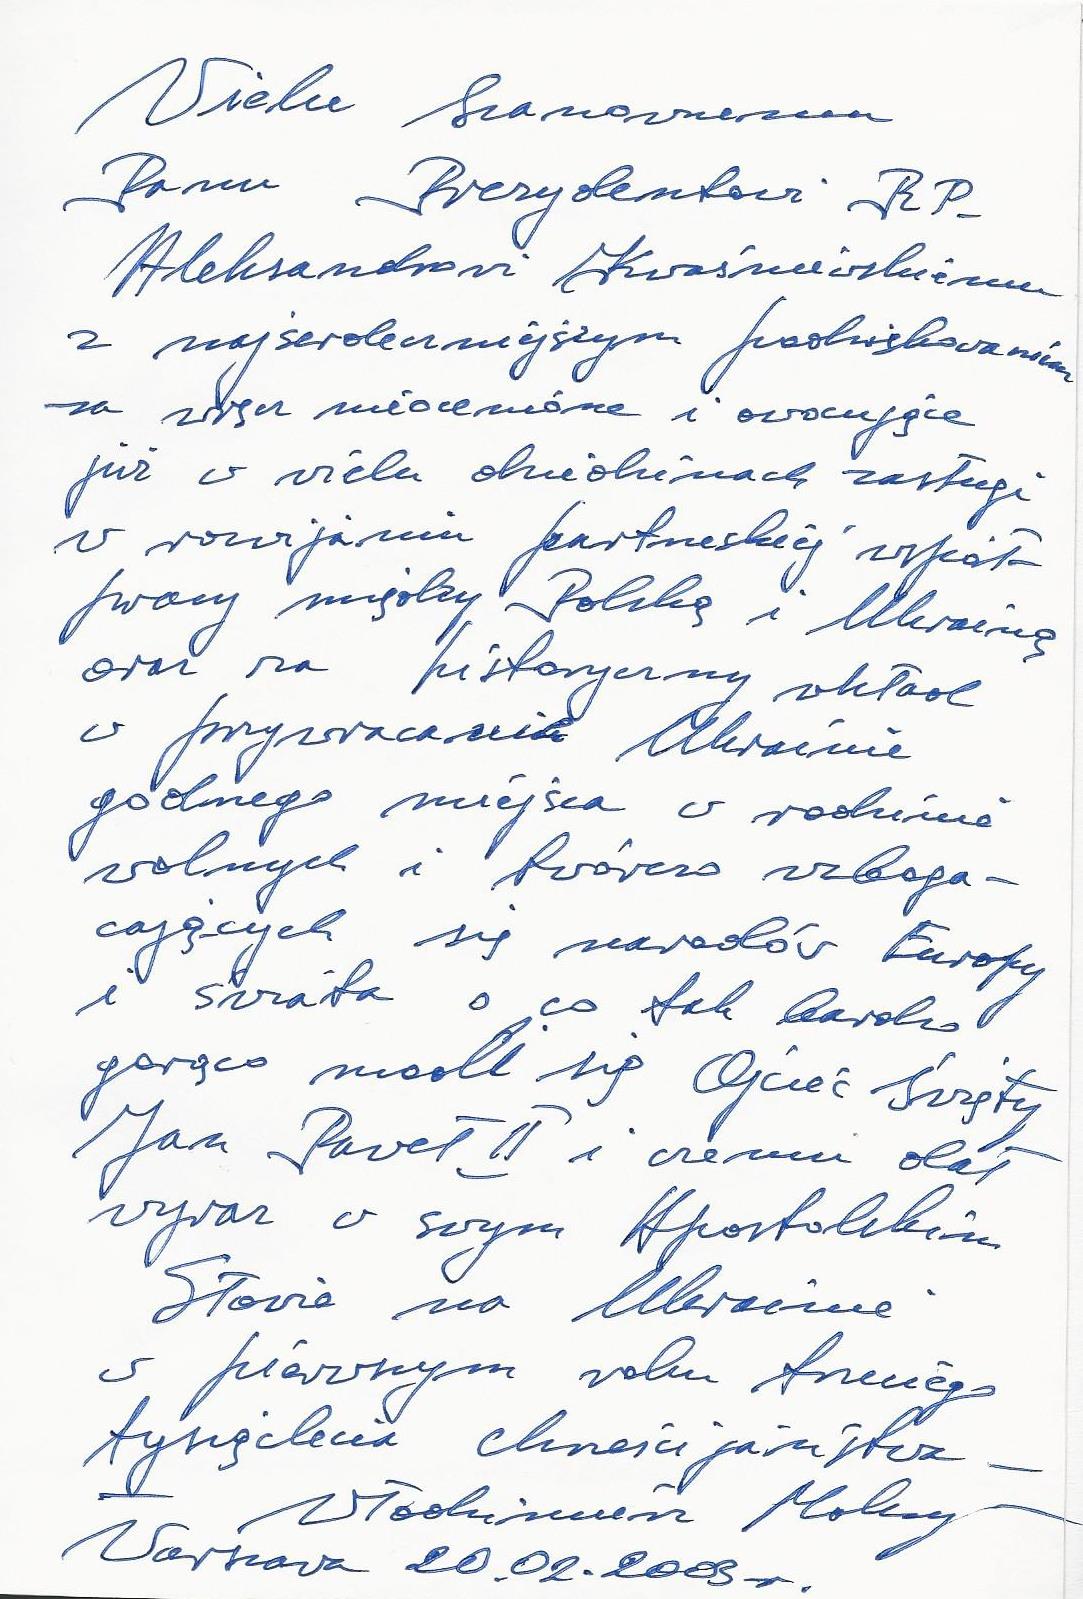 Wielce Szanownemu
Panu Prezydentowi RP
Aleksandrowi Kwaśniewskiemu
z najserdeczniejszym podziękowaniem
za wręcz nieocenione i owocujące
już w wielu dziedzinach zasługi
w rozwijaniu partnerskiej współ-
pracy między Polską i Ukrainą
oraz za historyczny wkład
w przywracanie Ukrainie
godnego miejsca w rodzinie
wolnych i twórczo wzboga-
cających się narodów Europy
i świata o co tak bardzo
gorąco modli się Ojciec Święty
Jan Paweł II i czemu dał
wyraz w swym Apostolskim
Słowie na Ukrainie
w pierwszym roku trzeciego
tysiąclecia chrześcijaństwa –
Włodzimierz Mokry
Warszawa 20.02.2003 r.